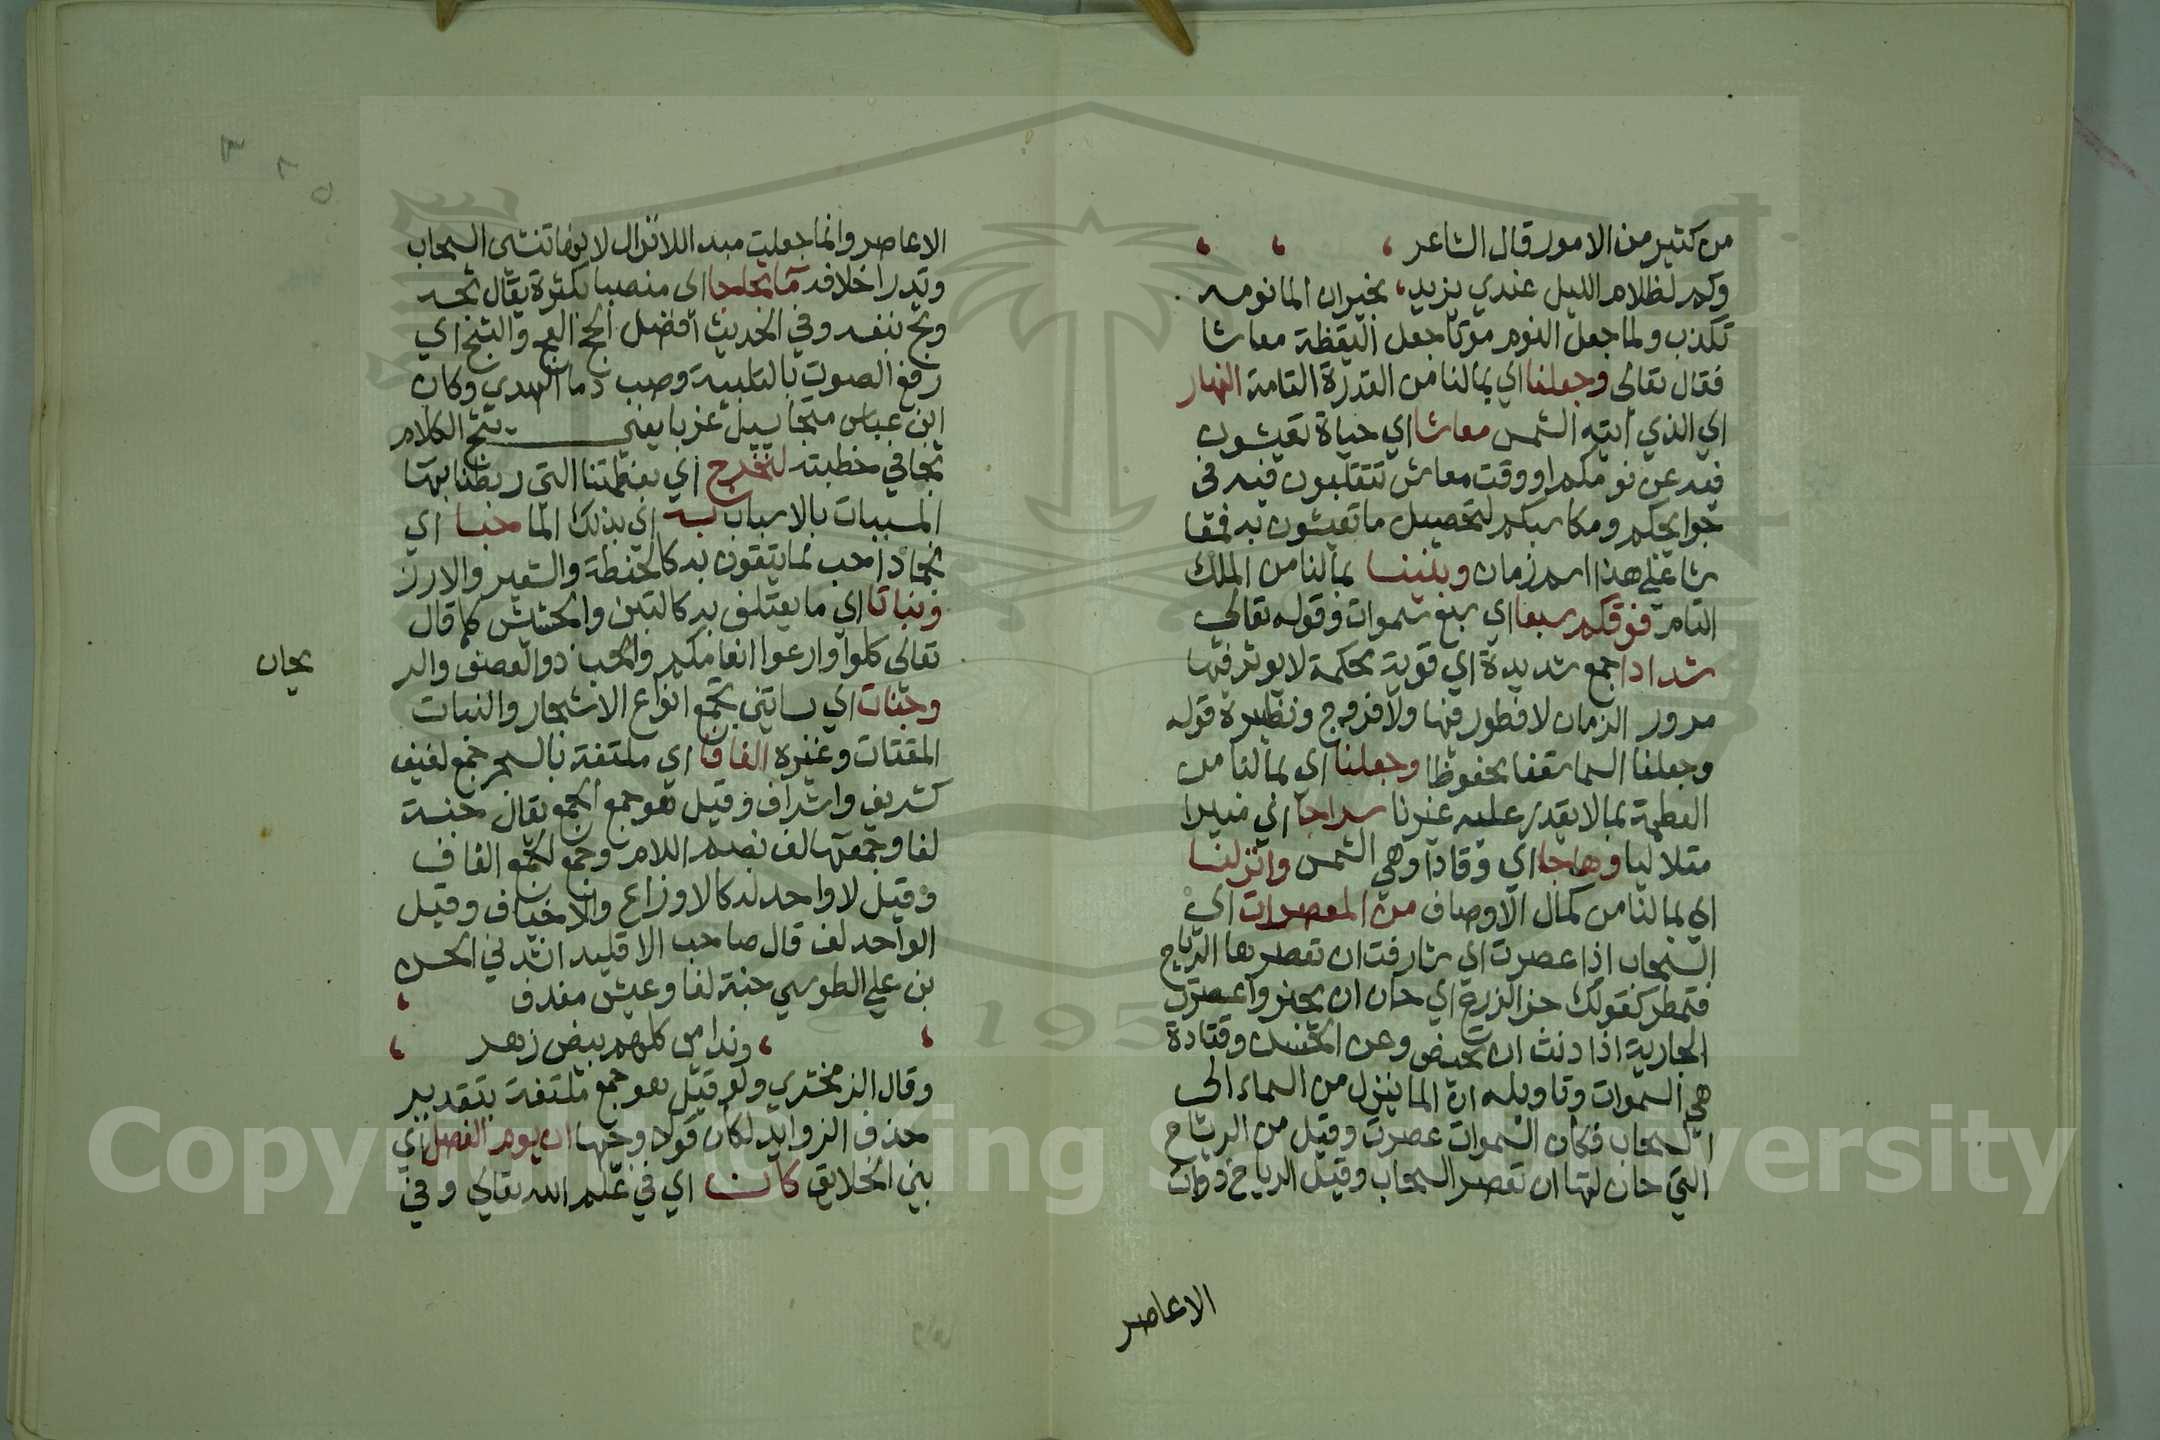 من كثير من الامور قال الشاعر
وكم لظلام الليل عندي يزيد، بخير ان المانومه
تكذب ولما جعل النوم موتا جعل اليقظة معاشا
فقال تعالى وجعلنا اي بمالنا من القدرة التامة النهار
اي الذي ايته الشمس معاشا اي حياة تعيشون
فيه عن نومكم او وقت معاش تتقلبون فيه في
حوايجكم ومكاسبكم لتحصيل ما تعيشون به فمعا
شا على هذا اسم زمان وبنينا بمالنا من الملك
التام فوقكم سبعا اي سبع سموات وقوله تعالى
شدادا جمع شديدة اي قوية محكمة لا يوثر فيها
مرور الزمان لا فطور فيها ولا فروج ونظيره قوله
وجعلنا السما سقفا محفوظا وجعلنا اي بمالنا من
العظمة بما لا يقدر عليه غيرنا سراجا اي منيرا
متلاليا وهاجا اي وقادا وهي الشمس وانزلنا
اي بمالنا من كمال الاوصاف من المعصرات اي
السحاب اذا عصرت اي شارفت ان تعصرها الرياح
فتمطر كقولك حز الزرع اي حان ان يحز واعصرت
الجارية اذا دنت ان تحيض وعن الحسن وقتادة
هي السموات وتاويله ان الما ينزل من السماء الى
السحاب فكان السموات عصرت وقيل من الرياح
التي حان لها ان تعصر السحاب وقيل الرياح ذوات
الاعاصر
الاعاصر وانما جعلت مبدا للانزال لانها تنشى السحاب
وتدر اخلافه مآ ثجاجا اي منصبا بكثرة يقال ثجه
وثج بنفسه وفي الحديث افضل الحج العج والثج اي
رفع الصوت بالتلبية وصب دما الهدي وكان
ابن عباس مثجا يسيل غربا يعني يثج الكلام
ثجا في خطبته لنخرج اي بعظمتنا التي ربطنا بها
المسببات بالاسباب به اي بذلك الما حبا اي
نجما ذا حب بما يتقوت به كالحنطة والشعير والارز
ونباتا اي ما يعتلف به كالتبن والحشيش كما قال
تعالى كلوا وارعوا انعامكم والحب ذو العصف والر
يحان
وجنات اي بساتين تجمع انواع الاشجار والنبات
المقتات وغيره الفافا اي ملتفة بالسجر جمع لفيف
كشريف واشراف وقيل هو جمع الجمع يقال جنة
لفا وجمعها لف بضم اللام وجمع الجمع الفاف
وقيل لا واحد له كالاوزاع والاخياف وقيل
الواحد لف قال صاحب الاقليد انشدني الحسن
بن علي الطوسي جنة لفا وعيش مغدق
وندامى كلهم بيض زهر
وقال الزمخشري ولو قيل هو جمع ملتفة بتقدير
حذف الزوايد لكان قولا وجها ان يوم الفصل اي
بين الخلايق كان اي في علم الله تعالى وفي